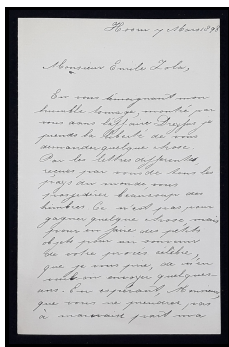 Hoorn 7 Mars 1898
Monsieur Emile Zola,
En vous témoignant mon
humble homage, par
vous dans l'affaire Dreyfus je
prends la liberté de vous
demander quelque chose.
Par les lettres différentes,
reçues par vous de tous les
pays du monde vous
possédez beaucoup des
timbres. Ce n'est pas pour
gagner quelque chose mais
pour en faire des petits
objets pour un souvenir
de votre procès célèbre,
que je vous prie, de m'en
envoyer quelques-
uns. En espérant Monsieur,
que vous ne prendrez pas
à mauvaise part ma